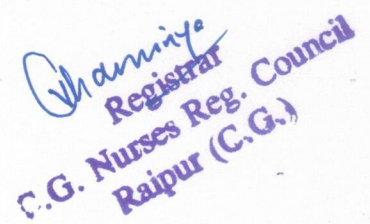 Registrar
C.G. Nurses Reg. Council
Raipur (C.G.)